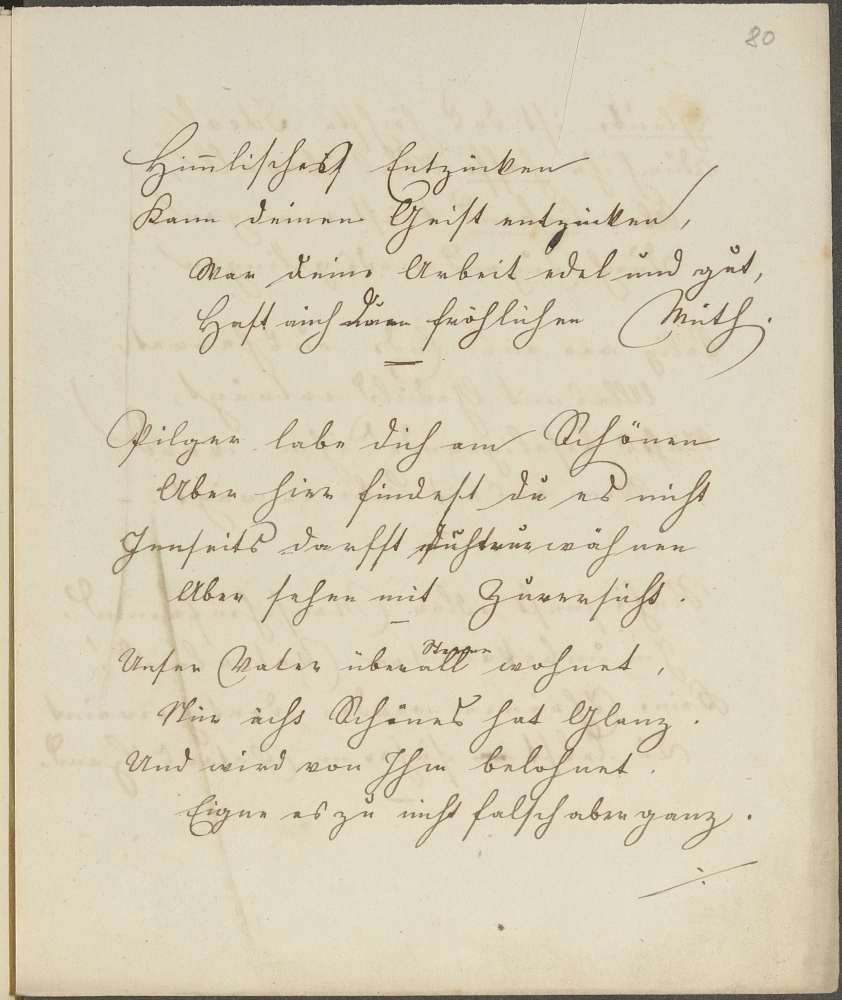 80
Himmlisches Entzücken
Kann deinen Geist entzücken,
War deine Arbeit edel und gut,
Hast auch Du fröhlichen Muth.
Pilger labe dich am Schönen
Aber hier findest du es nicht
Jenseits darfst wähnen
Aber sehen mit Zuversicht.
Sternen
Unser Vater überall wohnet,
Nur ächt Schönes hat Glanz.
Und wird von Ihm belohnet.
Eigne es zu nicht falsch aber ganz.